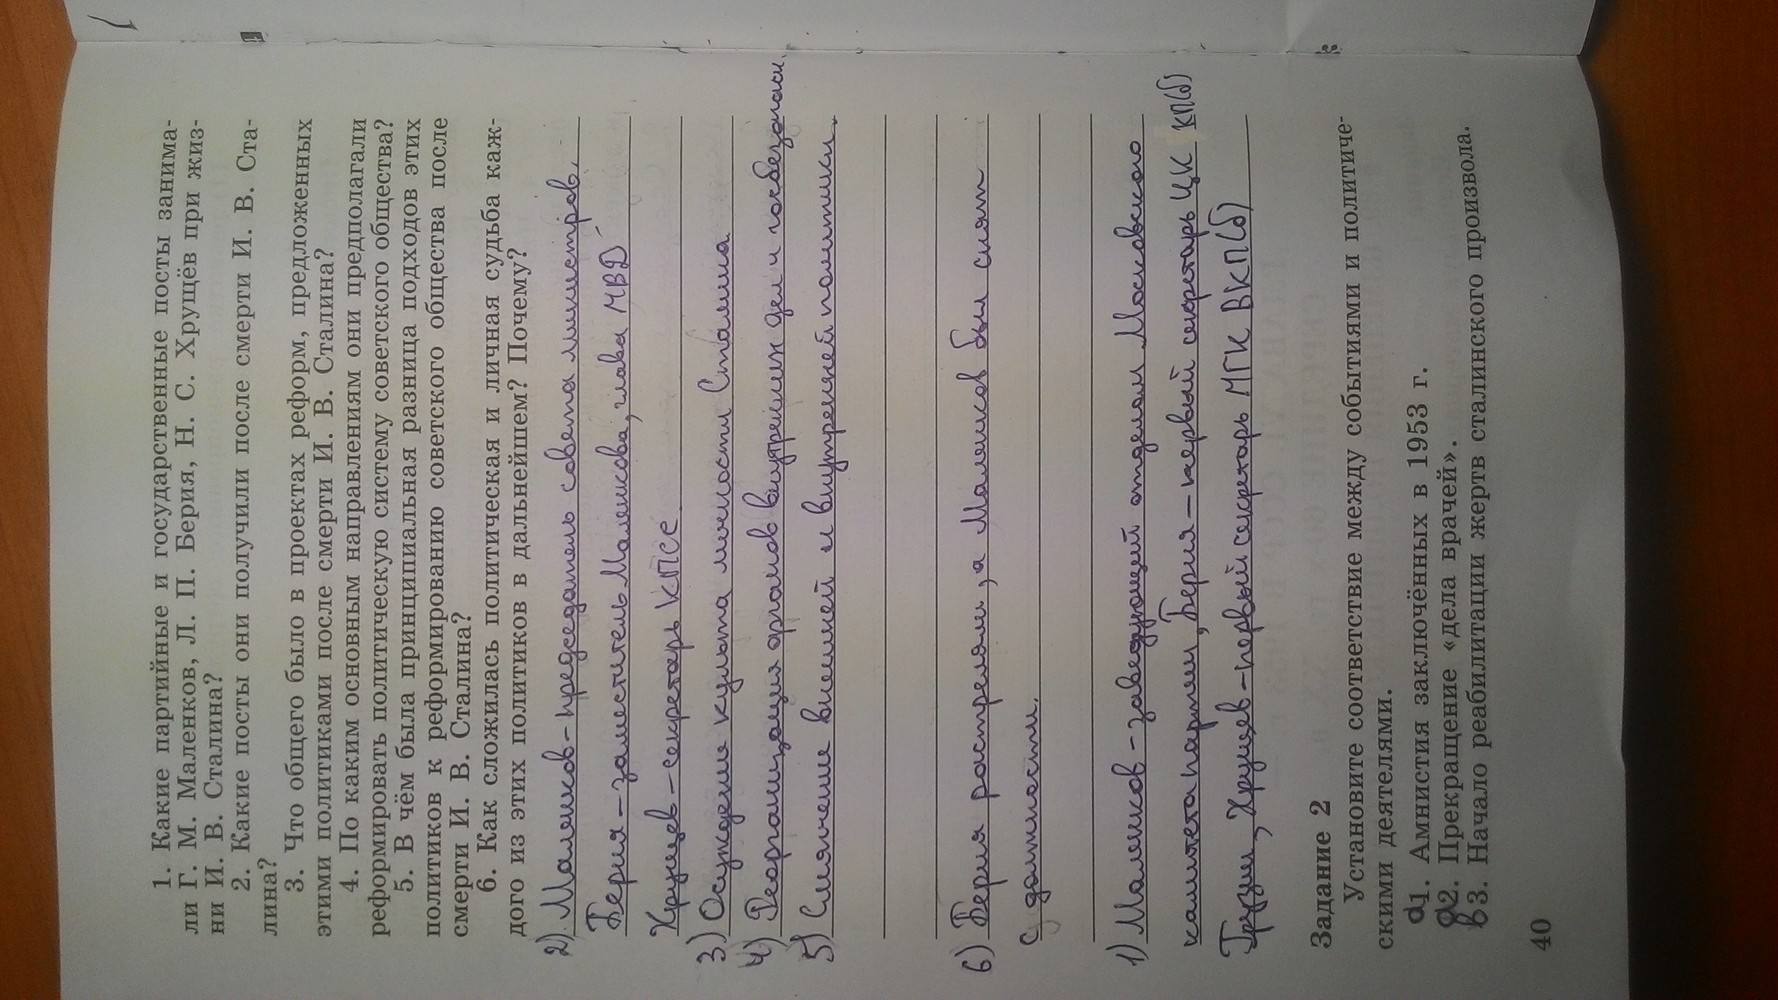 1. Какие партийные и государственные посты занима-
ли Г. М. Маленков, Л. П. Берия, Н. С. Хрущёв при жиз-
ни И. В. Сталина?
2. Какие посты они получили после смерти И. В. Ста-
лина?
3. Что общего было в проектах реформ, предложенных
этими политиками после смерти И. В. Сталина?
4. По каким основным направлениям они предполагали
реформировать политическую систему советского общества?
5. В чём была принципиальная разница подходов этих
политиков к реформированию советского общества после
смерти И. В. Сталина?
6. Как сложилась политическая и личная судьба каж-
дого из этих политиков в дальнейшем? Почему?
2) Маленков-председатель совета министров,
Берия-заместитель Маленкова, глава МВД
Хрущев-секретарь КПСС
3) Осуждение культа личности Сталина
4) Реорганизация органов внутренних дел и госбезопасн.
5) Смягчение внешней и внутренней политики.
6) Берия расстреляли, а Маленков был снят
с должности.
1) Маленков-заведующий отделом Московского
комитета партии, Берия-первый секретарь ЦК КП(б)
Грузии, Хрущев-первый секретарь МГК ВКП(б)
Задание 2
Установите соответствие между событиями и политиче-
скими деятелями.
а1. Амнистия заключённых в 1953 г.
2. Прекращение «дела врачей».
3. Начало реабилитации жертв сталинского произвола.
40